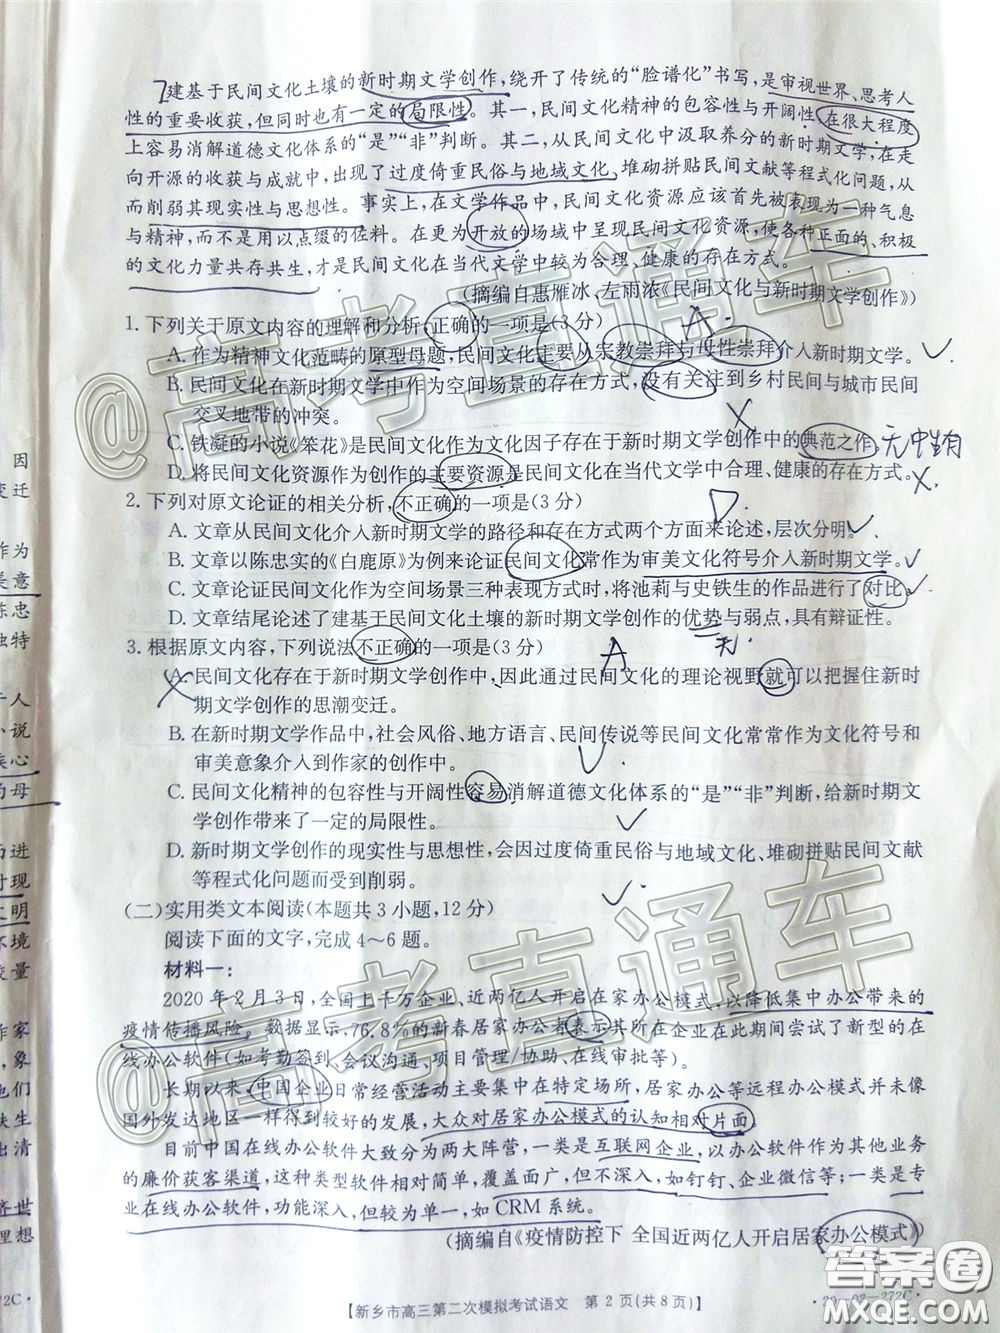 建基于民间文化土壤的新时期文学创作,绕开了传统的“脸谱化”书写,是审视世界、思考人
性的重要收获,但同时也有一定的局限性。其一,民间文化精神的包容性与开阔性,在很大程度
上容易消解道德文化体系的“是”“非”判断。其二,从民间文化中汲取养分的新时期文学,在走
向开源的收获与成就中,出现了过度倚重民俗与地域文化、堆砌拼贴民间文献等程式化问题,从
而削弱其现实性与思想性。事实上,在文学作品中,民间文化资源应该首先被表现为一种气息
与精神,而不是用以点缀的佐料。在更为开放的场域中呈现民间文化资源,使各种正面的、积极
的文化力量共存共生,才是民间文化在当代文学中较为合理、健康的存在方式。
(摘编自惠雁冰、左雨浓《民间文化与新时期文学创作》)
1. 下列关于原文内容的理解和分析,正确的一项是(3分)
A
A. 作为精神文化范畴的原型母题,民间文化主要从宗教崇拜与母性崇拜介入新时期文学。
B. 民间文化在新时期文学中作为空间场景的存在方式,没有关注到乡村民间与城市民间
交叉地带的冲突。
C. 铁凝的小说《笨花》是民间文化作为文化因子存在于新时期文学创作中的典范之作。
无中生有
D. 将民间文化资源作为创作的主要资源是民间文化在当代文学中合理、健康的存在方式。
2. 下列对原文论证的相关分析,不正确的一项是(3分)
D
A. 文章从民间文化介入新时期文学的路径和存在方式两个方面来论述,层次分明。
B. 文章以陈忠实的《白鹿原》为例来论证民间文化常作为审美文化符号介入新时期文学。
C. 文章论证民间文化作为空间场景三种表现方式时,将池莉与史铁生的作品进行了对比。
D. 文章结尾论述了建基于民间文化土壤的新时期文学创作的优势与弱点,具有辩证性。
3. 根据原文内容,下列说法不正确的一项是(3分)
A
A. 民间文化存在于新时期文学创作中,因此通过民间文化的理论视野就可以把握住新时
期文学创作的思潮变迁。
B. 在新时期文学作品中,社会风俗、地方语言、民间传说等民间文化常常作为文化符号和
审美意象介入到作家的创作中。
C. 民间文化精神的包容性与开阔性容易消解道德文化体系的“是”“非”判断,给新时期文
学创作带来了一定的局限性。
D. 新时期文学创作的现实性与思想性,会因过度倚重民俗与地域文化、堆砌拼贴民间文献
等程式化问题而受到削弱。
(二)实用类文本阅读(本题共3小题,12分)
阅读下面的文字,完成4~6题。
材料一:
2020年2月3日,全国上千万企业、近两亿人开启在家办公模式,以降低集中办公带来的
疫情传播风险。数据显示,76.8%的新春居家办公者表示其所在企业在此期间尝试了新型的在
线办公软件(如考勤签到、会议沟通、项目管理/协助、在线审批等)。
长期以来,中国企业日常经营活动主要集中在特定场所,居家办公等远程办公模式并未像
国外发达地区一样得到较好的发展,大众对居家办公模式的认知相对片面。
目前中国在线办公软件大致分为两大阵营,一类是互联网企业,以办公软件作为其他业务
的廉价获客渠道,这种类型软件相对简单,覆盖面广,但不深入,如钉钉、企业微信等;一类是专
业在线办公软件,功能深入,但较为单一,如CRM系统。
(摘编自《疫情防控下 全国近两亿人开启居家办公模式》)
【新乡市高三第二次模拟考试语文 第2页(共8页)】
·20-02-272C·
72C·
因
变迁
作为
美意
陈忠
独特
一人
小说
美心
的母
而进
对现
文明
环境
较量
作家
,象
他们
扶生
出清
济世
理想
@高考直通车
@高考直通车
答案圈
MXQE.COM